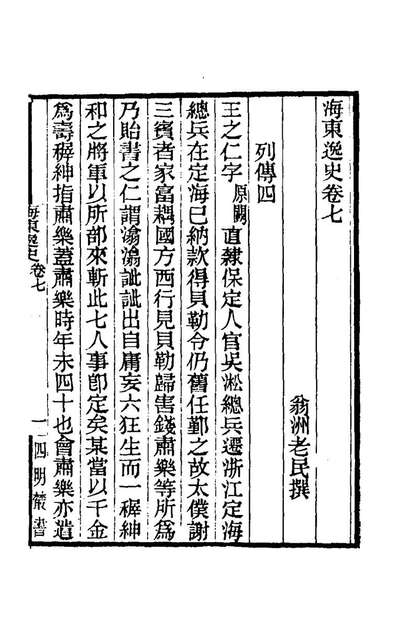 海東逸史卷七
翁洲老民撰
列傳四
王之仁字原闕直隷保定人官吳淞總兵遷浙江定海
總兵在定海已納款得貝勒令仍舊任鄞之故太僕謝
三賓者家富耦國方西行見貝勒歸害錢肅樂等所爲
乃貽書之仁謂潝潝訿訿出自庸妄六狂生而一穉紳
和之將軍以所部來斬此七人事卽定矣某當以千金
爲壽穉紳指肅樂蓋肅樂時年未四十也會肅樂亦遣
海東逸史卷七
一
四明叢書